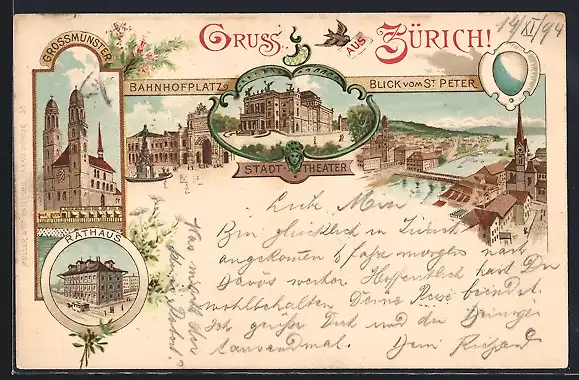 GROSSMÜNSTER
GRUSS AUS ZÜRICH!
19/XI/94
BAHNHOFPLATZ
BLICK VOM ST PETER
STADT THEATER
RATHAUS
Bin glücklich in Zürich
angekommen & fahre morgen nach
Davos weiter. Hoffentlich hast Du
wohlbehalten Deine Reise beendet.
Ich grüße Dich und die Deinigen
tausendmal. Dein Richard
Was macht der